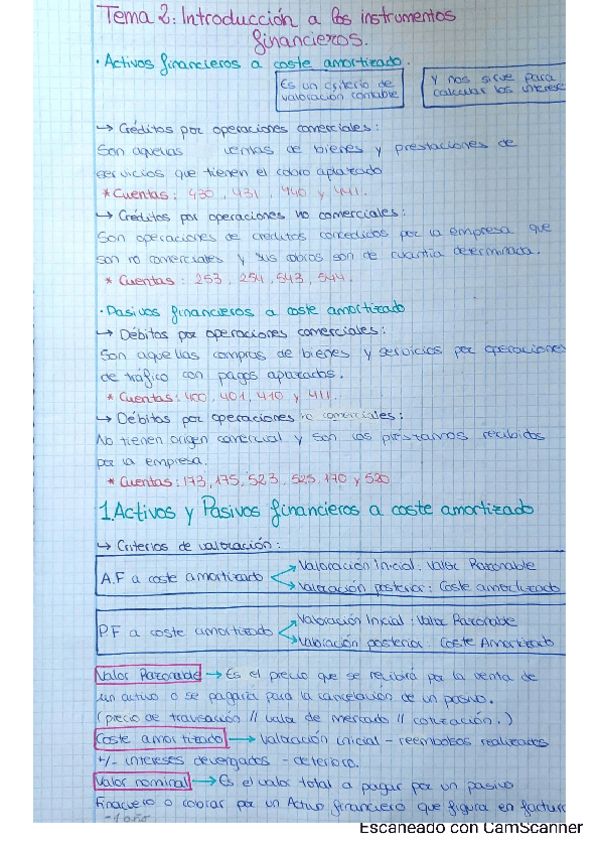 Tema 2: Introducción a los instrumentos
financieros.
· Activos financieros a coste amortizado.
Es un criterio de
valoración contable
Y nos sirve para
calcular los interese
→ Créditos por operaciones comerciales:
Son aquellas ventas de bienes y prestaciones de
servicios que tienen el cobro aplazado
* Cuentas: 430, 431, 440 y 441.
→ Créditos por operaciones no comerciales:
Son operaciones de creditos concedidos por la empresa que
son no comerciales y sus cobros son de cuantia determinada.
* Cuentas: 253, 254, 543, 544.
· Pasivos financieros a coste amortizado
→ Débitos por operaciones comerciales:
Son aquellas compras de bienes y servicios por operaciones
de tráfico con pagos aplazados.
* Cuentas: 400, 401, 410 y 411.
→ Débitos por operaciones no comerciales:
No tienen origen comercial y son los préstamos recibidos
por la empresa.
* Cuentas: 173, 175, 523, 525, 170 y 520
1. Activos y Pasivos financieros a coste amortizado
↪ Criterios de valoración:
A.F a coste amortizado
Valoración Inicial: Valor Razonable
Valoración posterior: Coste amortizado
PF a coste amortizado
Valoración Inicial: Valor Razonable
Valoración posterior: Coste Amortizado
Valor Razonable → Es el precio que se recibirá por la venta de
un activo o se pagaría para la cancelación de un pasivo.
(precio de transación // valor de mercado // cotización.)
Coste amortizado → Valoración inicial - reembolsos realizados
+/- intereses devengados - deterioro.
Valor nominal → Es el valor total a pagar por un pasivo
financiero o cobrar por un Activo financiero que figura en factura
-1 año
Escaneado con CamScanner